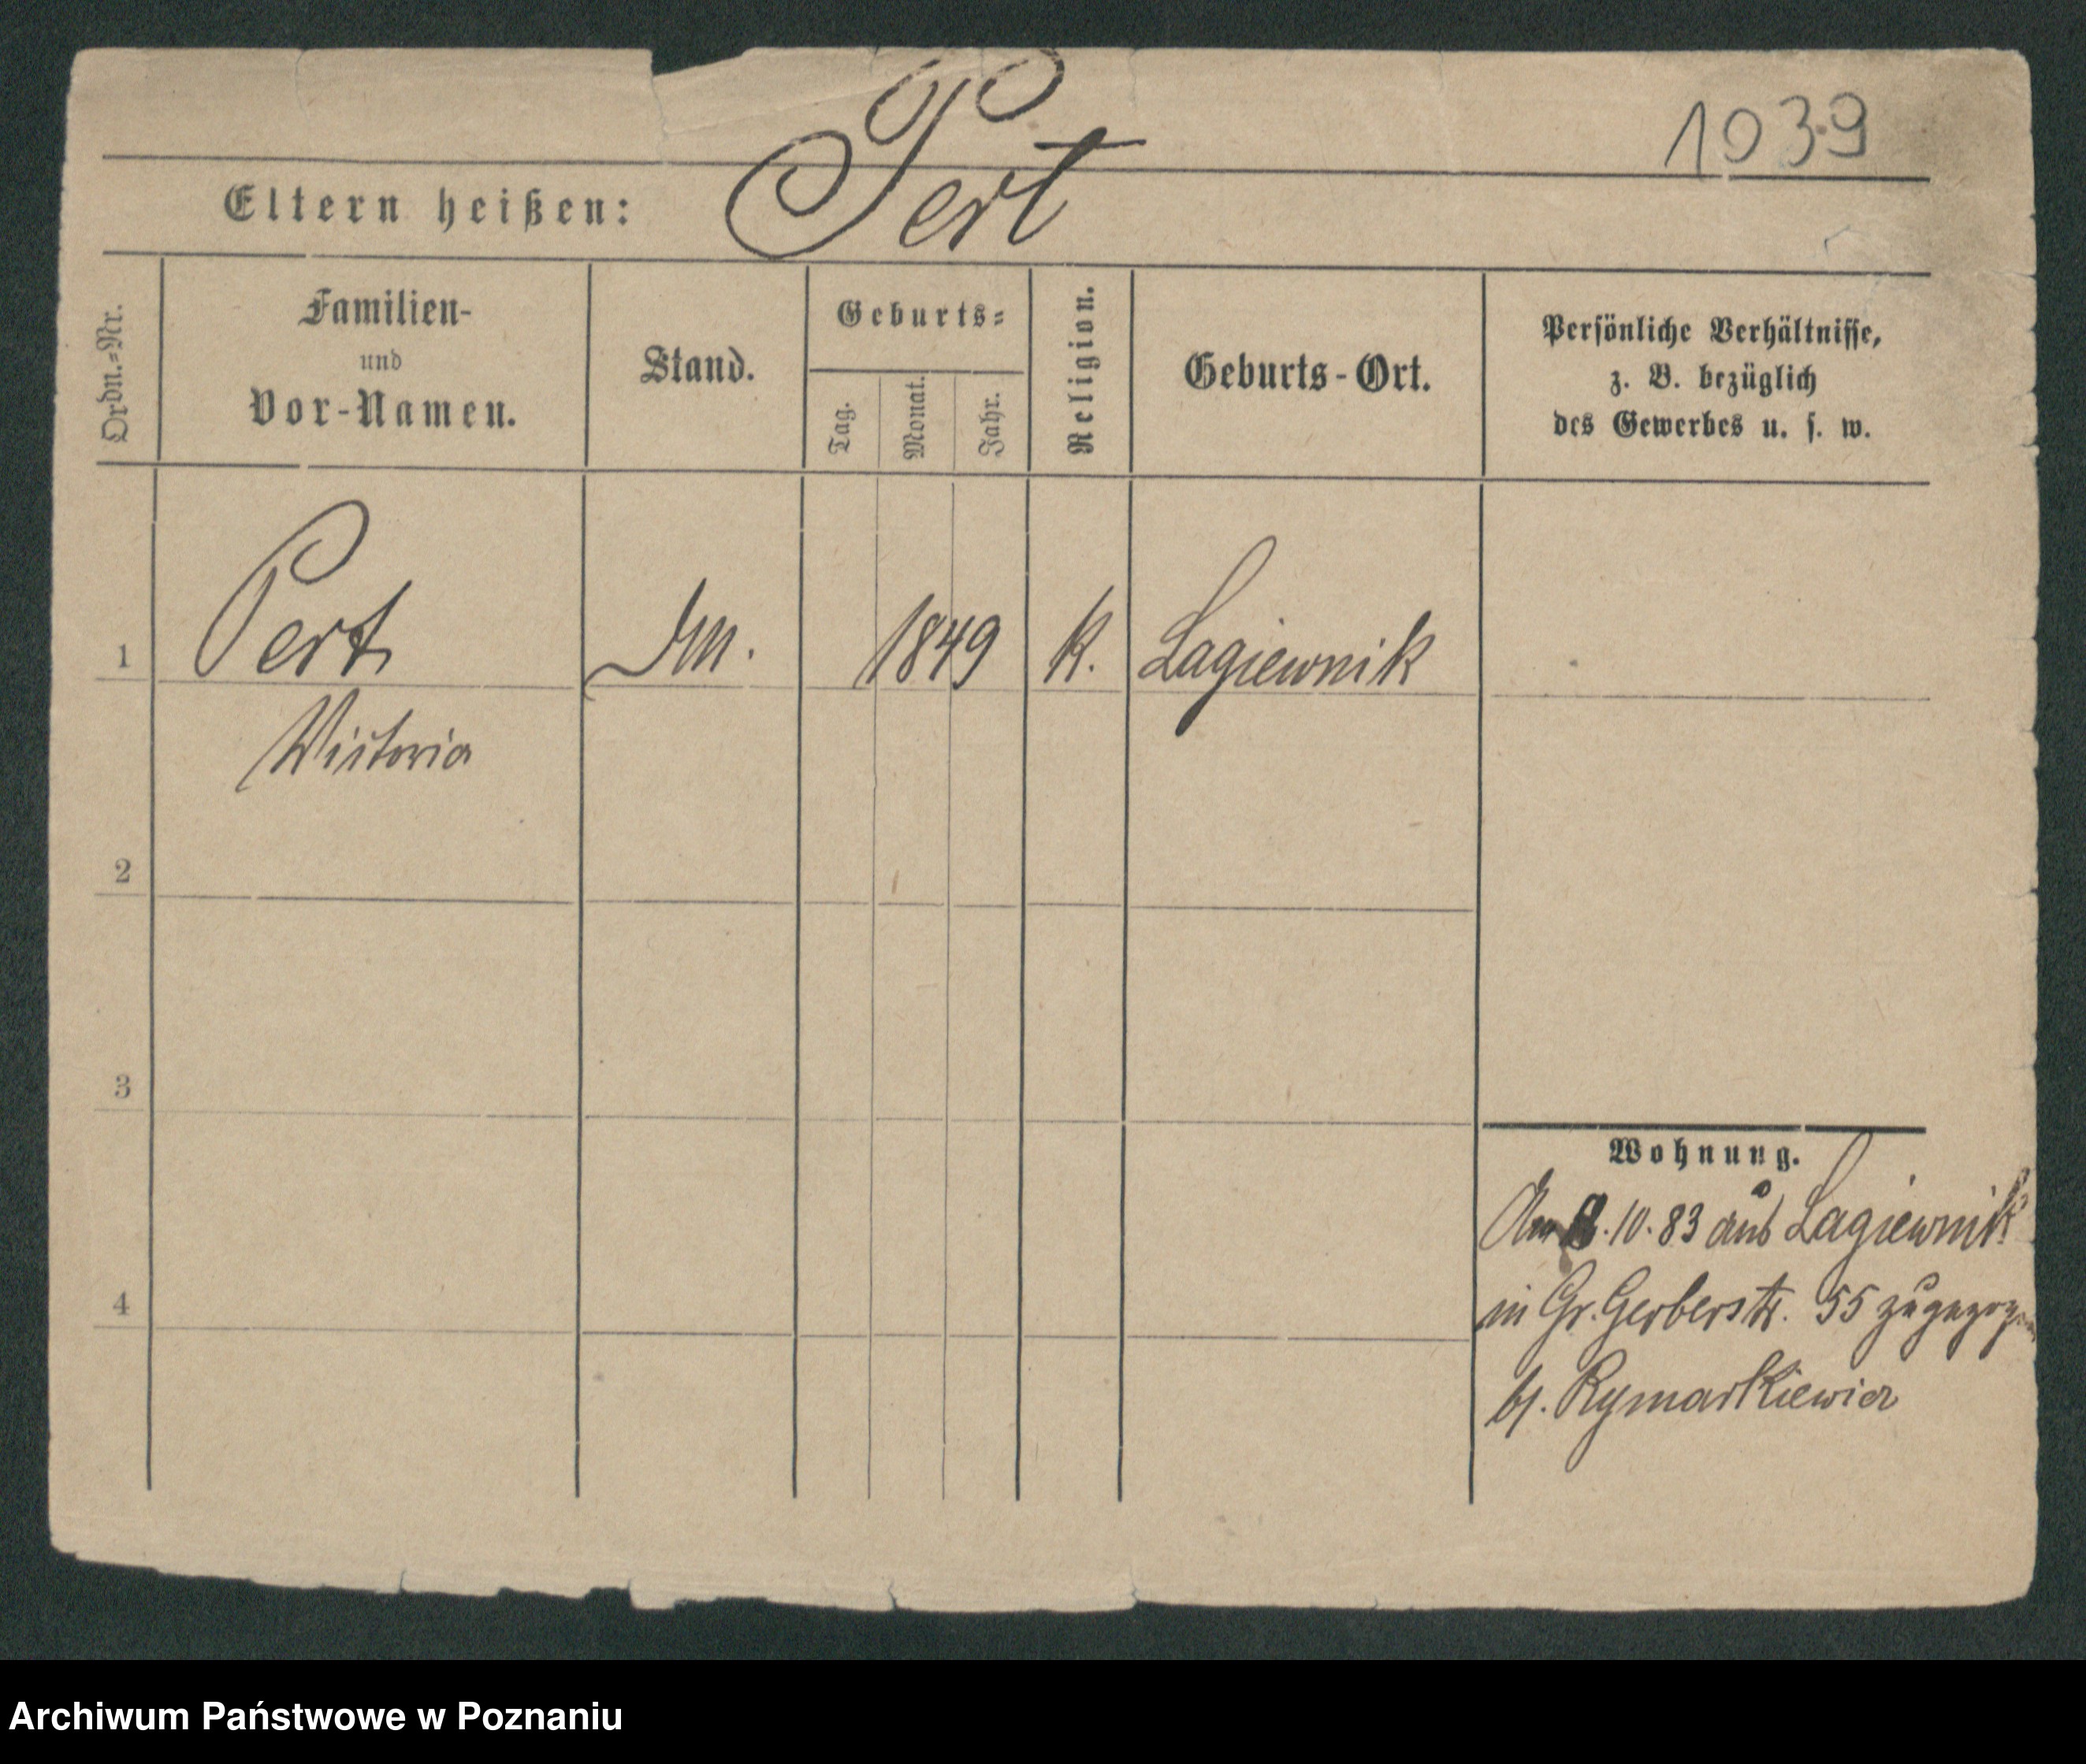 1039
Eltern heißen: Pert
Ordn.-Nr.
Familien-
und
Vor-Namen.
Stand.
Geburts-
Tag.
Monat.
Jahr.
Religion.
Geburts-Ort.
Persönliche Verhältnisse,
z. B. bezüglich
des Gewerbes u. s. w.
1 Pert 1849 k. Lagiewnik
Wictoria
2
3
4
Wohnung.
Am .10.83 aus Lagiewnik
in Gr. Gerberstr. 55 zugezogen
b/. Rymarkiewicz
Archiwum Państwowe w Poznaniu